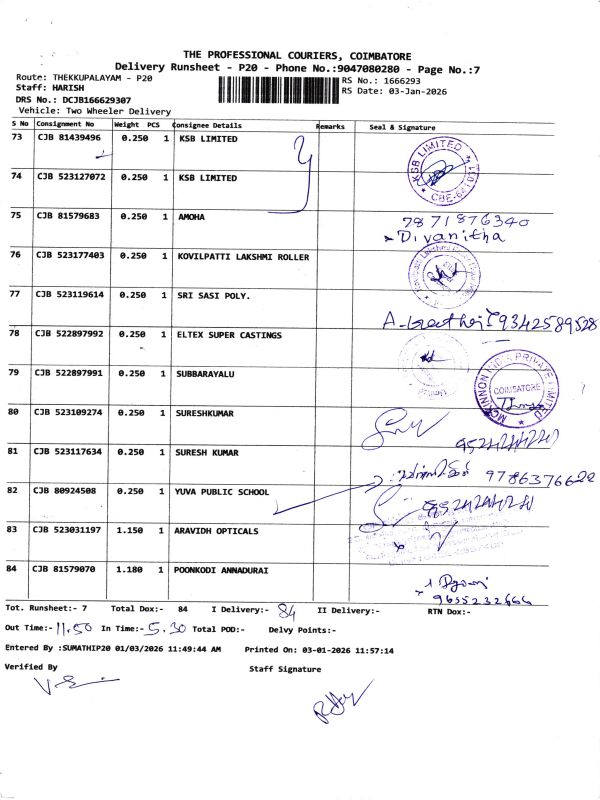 THE PROFESSIONAL COURIERS, COIMBATORE
Delivery Runsheet - P20 - Phone No.:9047080280 - Page No.:7
Route: THEKKUPALAYAM - P20
RS No.: 1666293
Staff: HARISH
RS Date: 03-Jan-2026
DRS No.: DCJB166629307
Vehicle: Two Wheeler Delivery
S No Consignment No Weight PCS Consignee Details Remarks Seal & Signature
73 CJB 81439496 0.250 1 KSB LIMITED
KSB LIMITED CBE-641011
74 CJB 523127072 0.250 1 KSB LIMITED
75 CJB 81579683 0.250 1 AMOHA 7871876340
Divanitha
76 CJB 523177403 0.250 1 KOVILPATTI LAKSHMI ROLLER
77 CJB 523119614 0.250 1 SRI SASI POLY.
9342589528
78 CJB 522897992 0.250 1 ELTEX SUPER CASTINGS
79 CJB 522897991 0.250 1 SUBBARAYALU
MCKINNON INDIA PRIVATE LIMITED COIMBATORE
80 CJB 523109274 0.250 1 SURESHKUMAR
81 CJB 523117634 0.250 1 SURESH KUMAR
9786376622
82 CJB 80924508 0.250 1 YUVA PUBLIC SCHOOL
83 CJB 523031197 1.150 1 ARAVIDH OPTICALS
84 CJB 81579070 1.180 1 POONKODI ANNADURAI
9655232666
Tot. Runsheet:- 7 Total Dox:- 84 I Delivery:- 84 II Delivery:- RTN Dox:-
Out Time:- 11.50 In Time:- 5.30 Total POD:- Delvy Points:-
Entered By :SUMATHIP20 01/03/2026 11:49:44 AM Printed On: 03-01-2026 11:57:14
Verified By Staff Signature